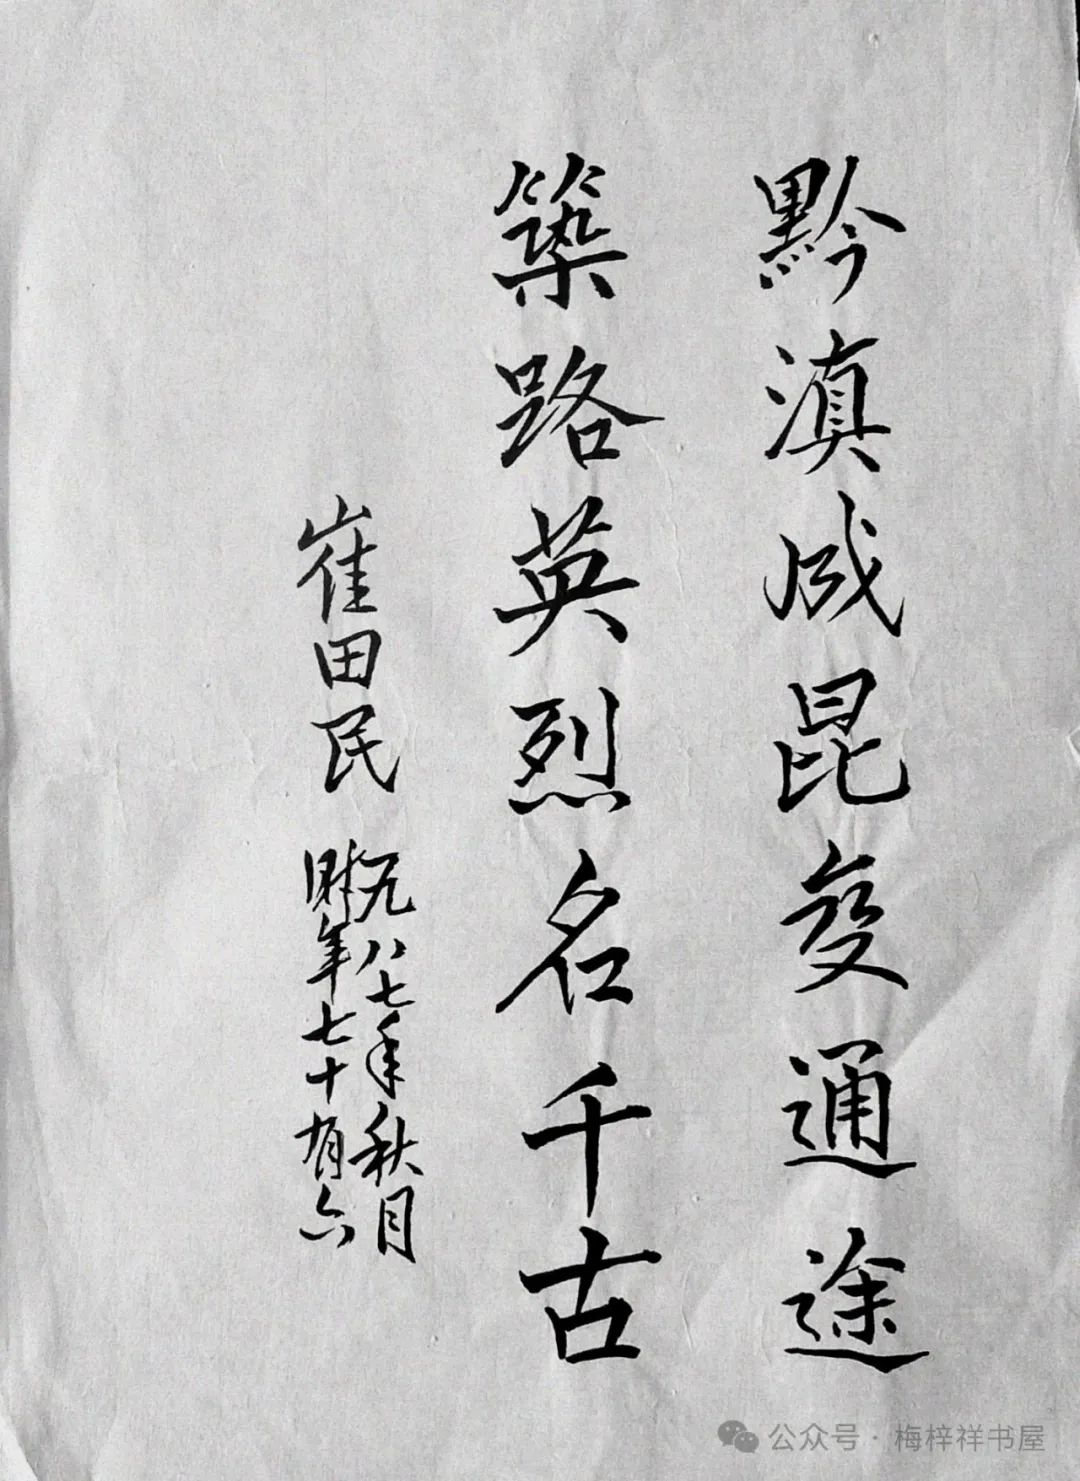 黔滇成昆变通途
築路英烈名千古
崔田民
一九八七年秋月
时年七十有六
公众号·梅梓祥书屋